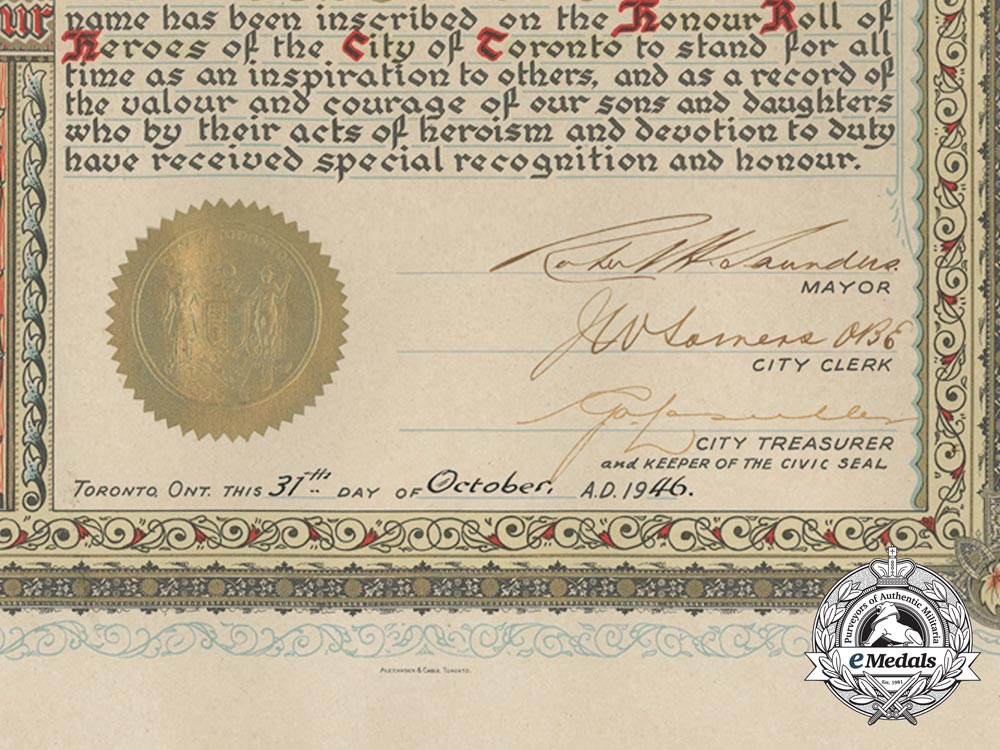 our
name has been inscribed on the Honour Roll of
Heroes of the City of Toronto to stand for all
time as an inspiration to others, and as a record of
the valour and courage of our sons and daughters
who by their acts of heroism and devotion to duty
have received special recognition and honour.
Robert H. Saunders.
MAYOR
JW Somers OBE
CITY CLERK
CITY TREASURER
and KEEPER OF THE CIVIC SEAL
TORONTO, ONT. THIS 31th DAY OF October, A.D. 1946.
ALEXANDER & CABLE, TORONTO.
Purveyors of Authentic Militaria
eMedals
Est. 1981